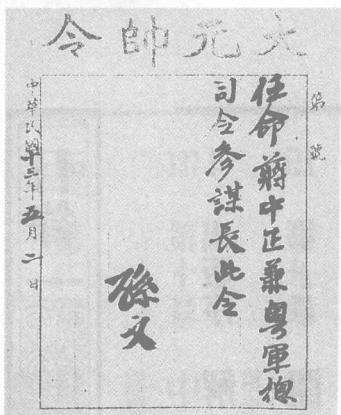 大元帥令
第 號
任命蔣中正兼粵軍總
司令參謀長此令
孫文
中華民國十三年五月二日